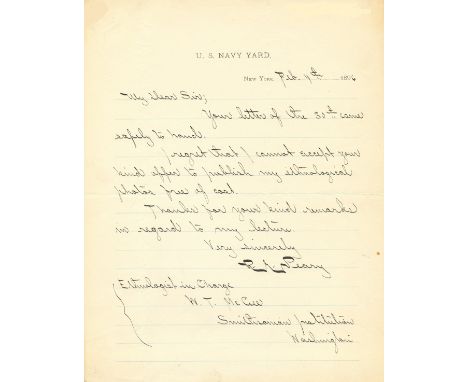 U. S. NAVY YARD.
New York, Feb. 9th 1896
My Dear Sir;
Your letter of the 30th came
safely to hand.
I regret that I cannot accept your
kind offer to publish my ethnological
photos free of cost.
Thanks for your kind remarks
in regard to my lecture.
Very sincerely
R E Peary
Ethnologist in Charge
W. T. McGee
Smithsonian Institution
Washington